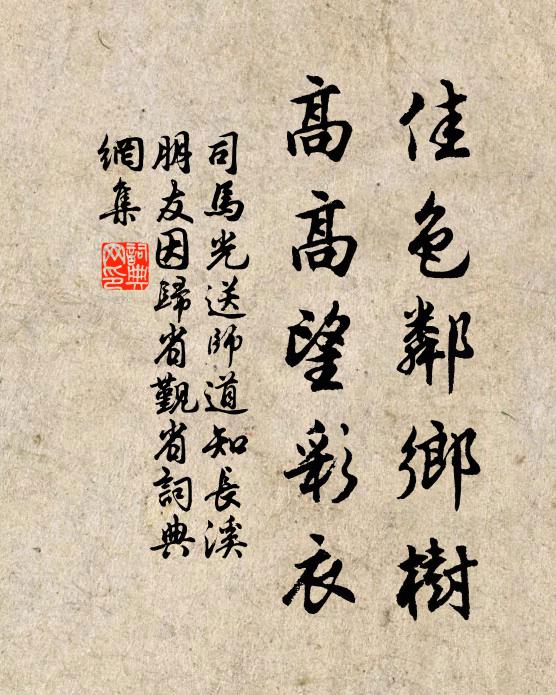 佳色鄰鄉樹
高高望彩衣
司馬光送師道知長溪
朋友因歸省觀省詞典
網集
詞典網印